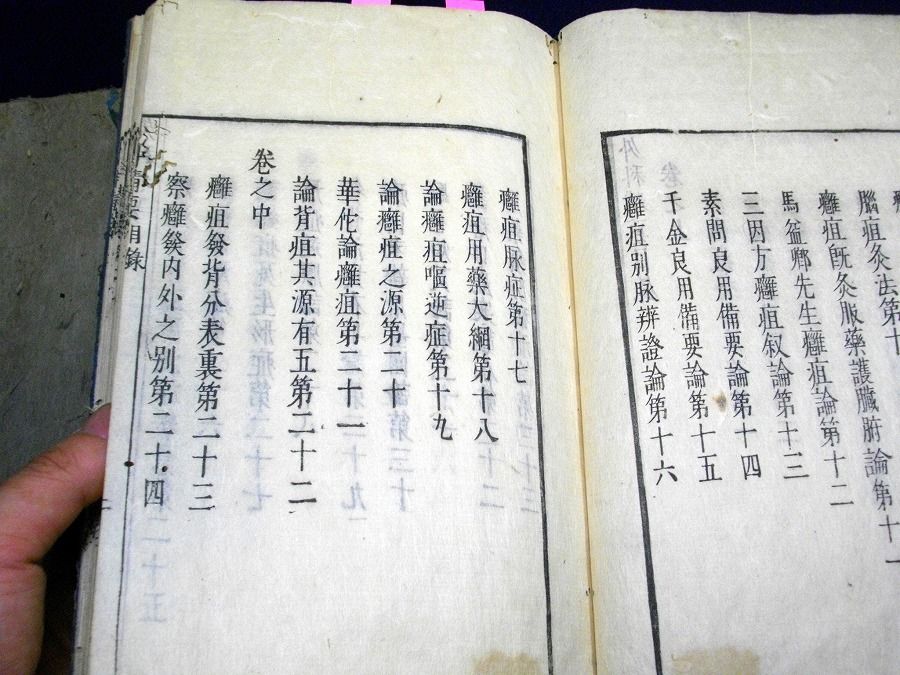 腦疽灸法第十
癰疽既灸服藥護臟腑論第十一
馬益卿先生癰疽論第十二
三因方癰疽叙論第十三
素問良用備要論第十四
千金良用備要論第十五
癰疽别脉辨證論第十六
癰疽脉症第十七
癰疽用藥大綱第十八
論癰疽嘔逆症第十九
論癰疽之源第二十
華佗論癰疽第二十一
論背疽其源有五第二十二
卷之中
癰疽發背分表裏第二十三
察癰發内外之别第二十四
目錄